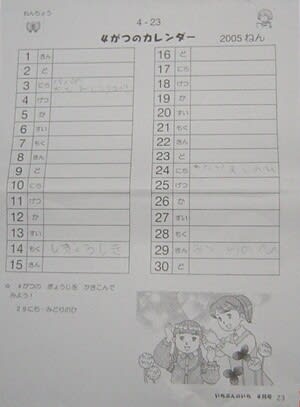 ねんちょう
4-23
4がつのカレンダー 2005ねん
1 きん
2 ど
3 にち
4 げつ
5 か
6 すい
7 もく
8 きん
9 ど
10 にち
11 げつ
12 か
13 すい
14 もく しぎょうしき
15 きん
16 ど
17 にち
18 げつ
19 か
20 すい
21 もく
22 きん
23 ど
24 にち
25 げつ
26 か
27 すい
28 もく
29 きん みどりのひ
30 ど
☆ 4がつの ぎょうじを かきこんで
みよう!
29にち・みどりのひ
いちぶんのいち 4月号 23